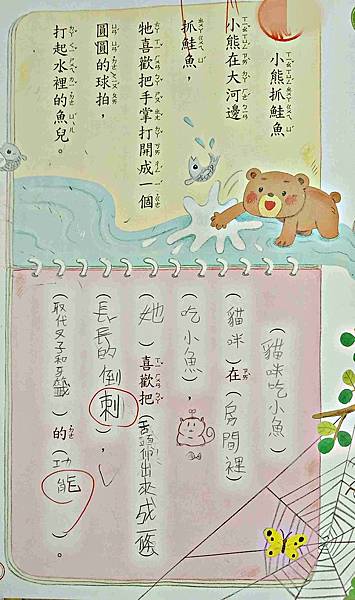 小熊抓鮭魚
小熊在大河邊
抓鮭魚，
牠喜歡把手掌打開成一個
圓圓的球拍，
打起水裡的魚兒。
（貓咪吃小魚）
（貓咪）在（房間裡）
（吃小魚），
（她）喜歡把（舌頭伸出來成一條）
（長長的倒刺），
（取代叉子和牙籤）的（功能）。